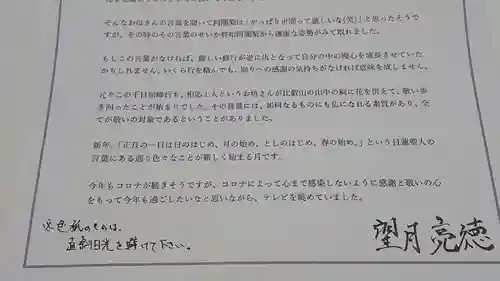 そんなお母さんの言葉を聞いて阿闍梨は「やっぱり世間って厳しいな(笑)」と思ったそうで
すが、その時のその言葉のせいか終始阿闍梨から謙虚な姿勢がみて取れました。
もしこの言葉がなければ、厳しい修行が逆に仇となって自分の中の慢心を成長させていた
かもしれません。いくら行を積んでも、周りへの感謝の気持ちがなければ意味を成しません。
元々この千日回峰行も、相応上人というお坊さんが比叡山の山中の祠に花を供えて、敬い歩
き回ったことが始まりでした。その背景には、如何なるものにも仏になれる素質があり、全
てが敬いの対象であるということがありました。
新年、「正月の一日は日のはじめ、月の始め、としのはじめ、春の始め。」という日蓮聖人の
言葉にある通り色々なことが新しく始まる月です。
今年もコロナが続きそうですが、コロナによって心まで感染しないように感謝と敬いの心
をもって今年も過ごしたいなと思いながら、テレビを眺めていました。
のものは、
直射日光を避けて下さい。
望月亮徳